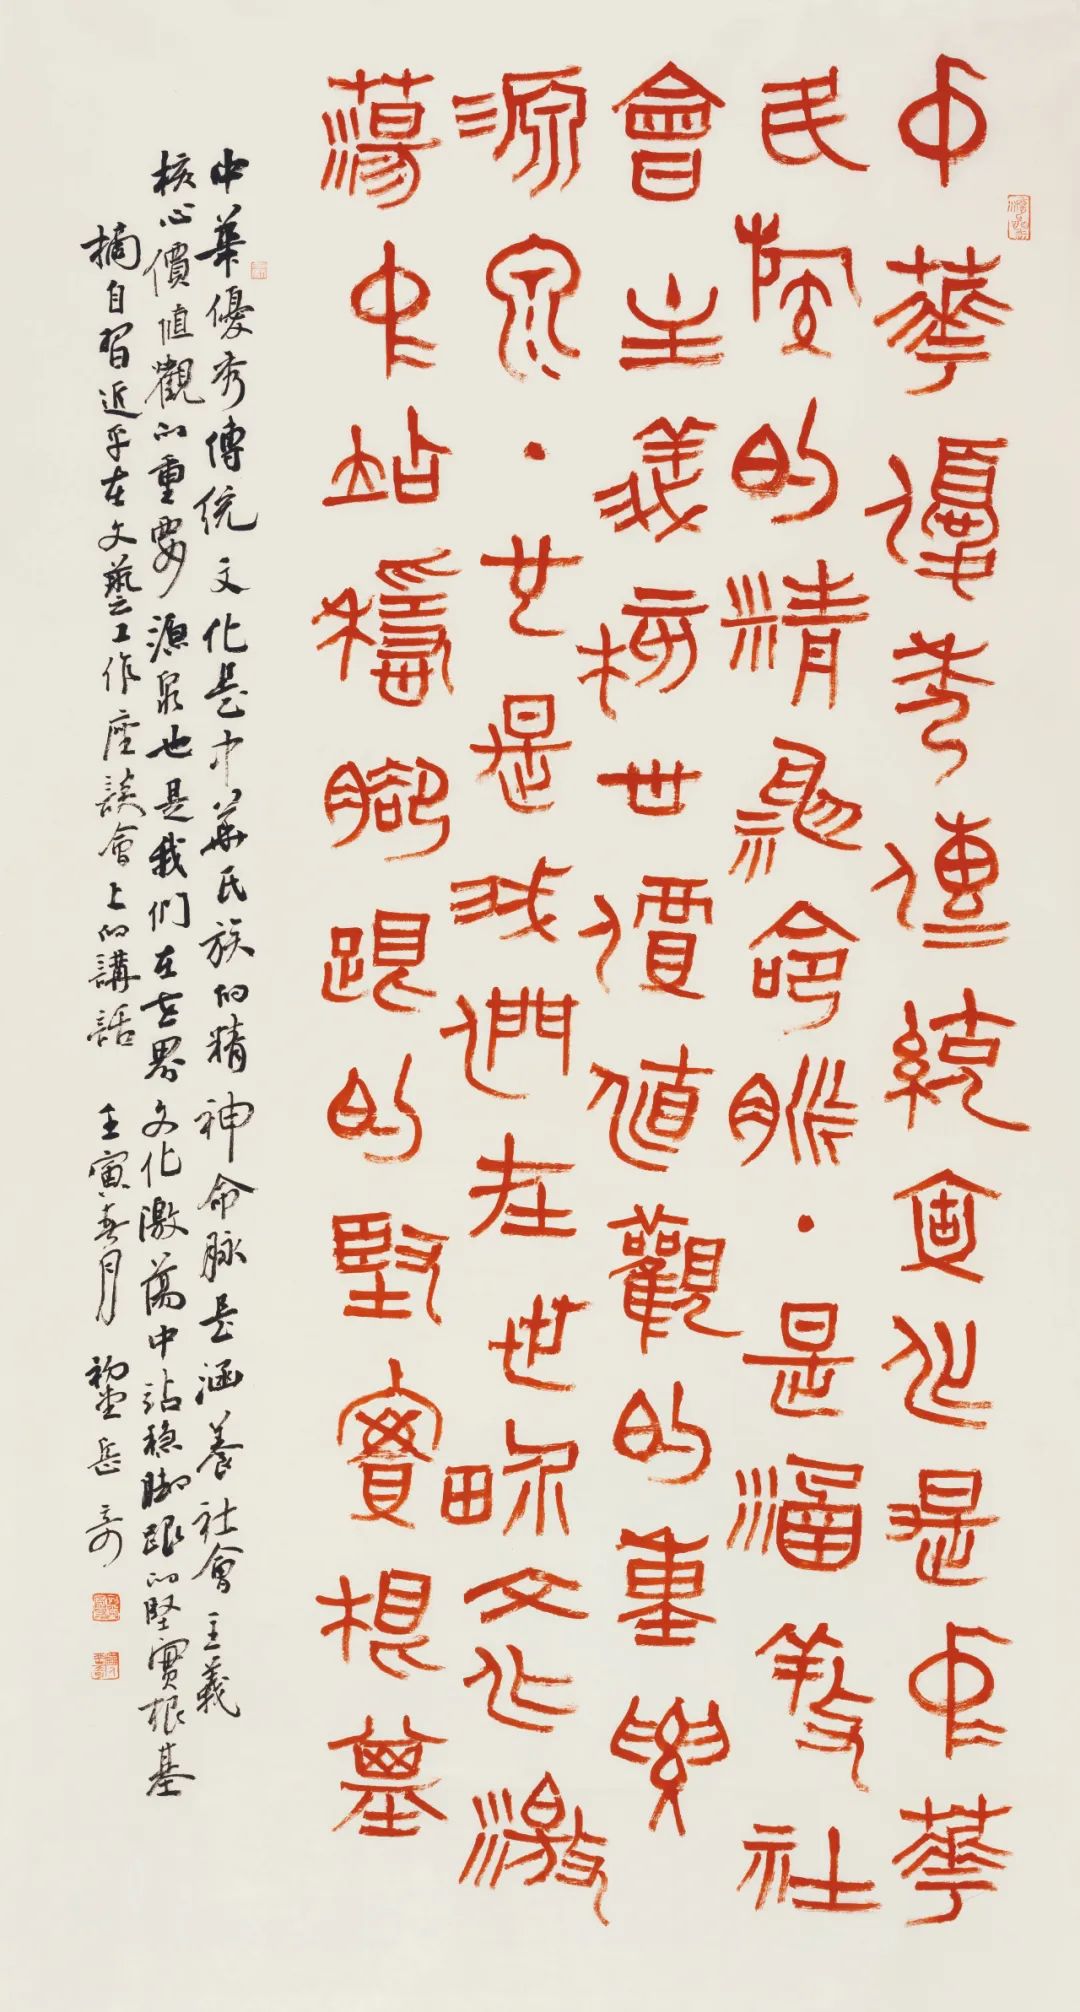 中華優秀傳統文化是中華
民族的精神命脈·是涵養社
會主義核心價值觀的重要
源泉·也是我們在世界文化激
蕩中站穩腳跟的堅實根基
中華優秀傳統文化是中華民族的精神命脉是涵養社會主義
核心價值觀的重要源泉也是我們在世界文化激蕩中站稳脚跟的堅實根基
摘自習近平在文藝工作座談會上的講話 壬寅春月 岳奇